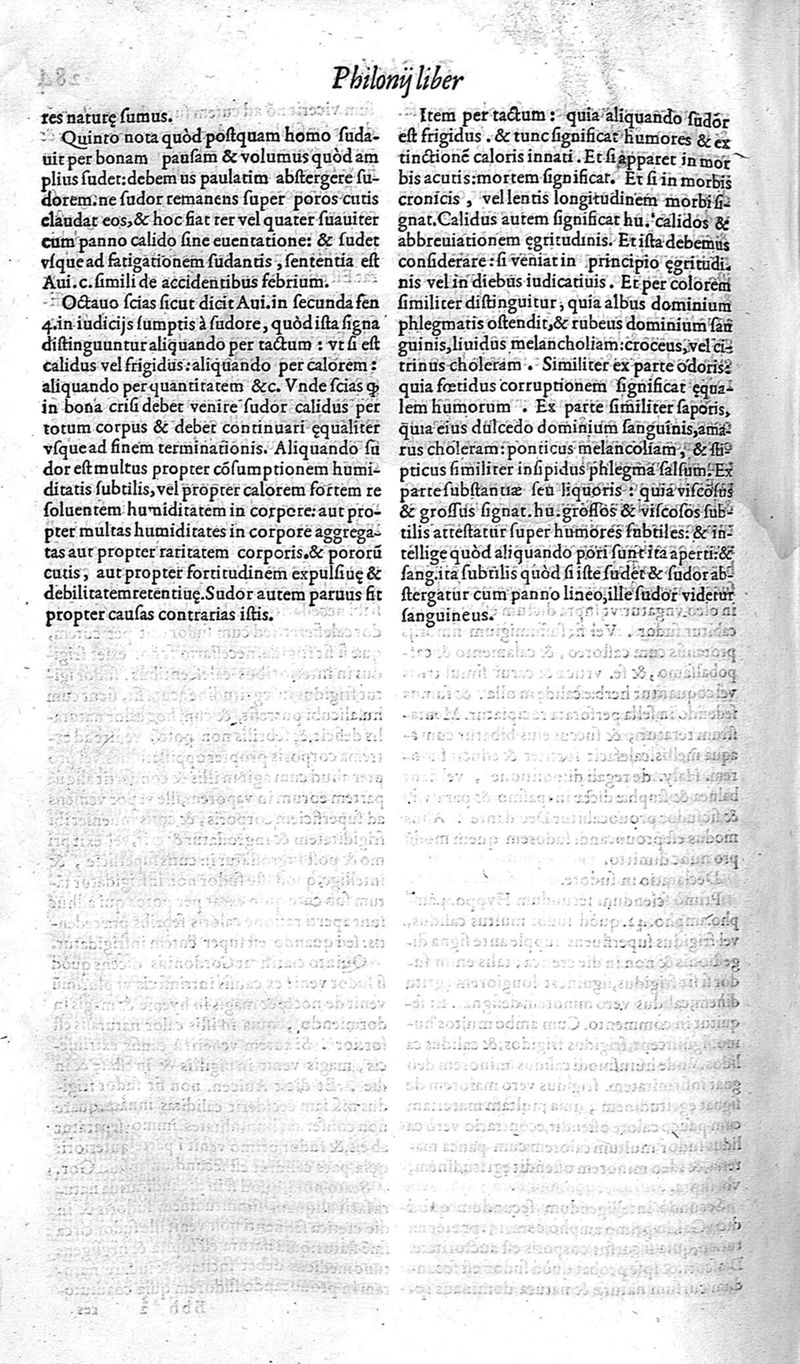 Philonij liber
res naturę ſumus.
Quinto nota quòd poſtquam homo ſuda-
uit per bonam pauſam & volumus quòd am
plius ſudet: debemus paulatim abſtergere ſu-
dorem: ne ſudor remanens ſuper poros cutis
claudat eos, & hoc fiat ter vel quater ſuauiter
cum panno calido ſine euentatione: & ſudet
vſque ad fatigationem ſudantis, ſententia eſt
Aui. c. ſimili de accidentibus febrium.
Octauo ſcias ſicut dicit Aui. in ſecunda fen
4. in iudicijs ſumptis à ſudore, quòd iſta ſigna
diſtinguuntur aliquando per tactum: vt ſi eſt
calidus vel frigidus: aliquando per calorem:
aliquando per quantitatem &c. Vnde ſcias ꝙ
in bona criſi debet venire ſudor calidus per
totum corpus & debet continuari ęqualiter
vſque ad finem terminationis. Aliquando ſu
dor eſt multus propter cõſumptionem humi-
ditatis ſubtilis, vel propter calorem fortem re
ſoluentem humiditatem in corpore: aut pro-
pter multas humiditates in corpore aggrega-
tas aut propter raritatem corporis. & pororũ
cutis, aut propter fortitudinem expulſiuę &
debilitatem retentiuę. Sudor autem paruus fit
propter cauſas contrarias iſtis.
Item per tactum: quia aliquando ſudor
eſt frigidus. & tunc ſignificat humores & ex
tinctionẽ caloris innati. Et ſi apparet in mor
bis acutis: mortem ſignificat. Et ſi in morbis
cronicis, vel lentis longitudinem morbi ſi-
gnat. Calidus autem ſignificat hu. calidos &
abbreuiationem ęgritudinis. Et iſta debemus
conſiderare: ſi veniat in principio ęgritudi-
nis vel in diebus iudicatiuis. Et per colorem
ſimiliter diſtinguitur, quia albus dominium
phlegmatis oſtendit, & rubeus dominium ſan
guinis, liuidus melancholiam: croceus, vel ci-
trinus choleram. Similiter ex parte odoris:
quia fœtidus corruptionem ſignificat ęqua-
lem humorum. Ex parte ſimiliter ſaporis,
quia eius dulcedo dominium ſanguinis, ama-
rus choleram: ponticus melancoliam, & ſti-
pticus ſimiliter inſipidus phlegma ſalſum. Ex
parte ſubſtantiæ ſeu liquoris: quia viſcoſus
& groſſus ſignat. hu. groſſos & viſcoſos ſub-
tilis atteſtatur ſuper humores ſubtiles: & in-
tellige quòd aliquando pori ſunt ita aperti: &
ſang. ita ſubtilis quòd ſi iſte ſudet & ſudor ab-
ſtergatur cum panno lineo, ille ſudor videtur
ſanguineus.